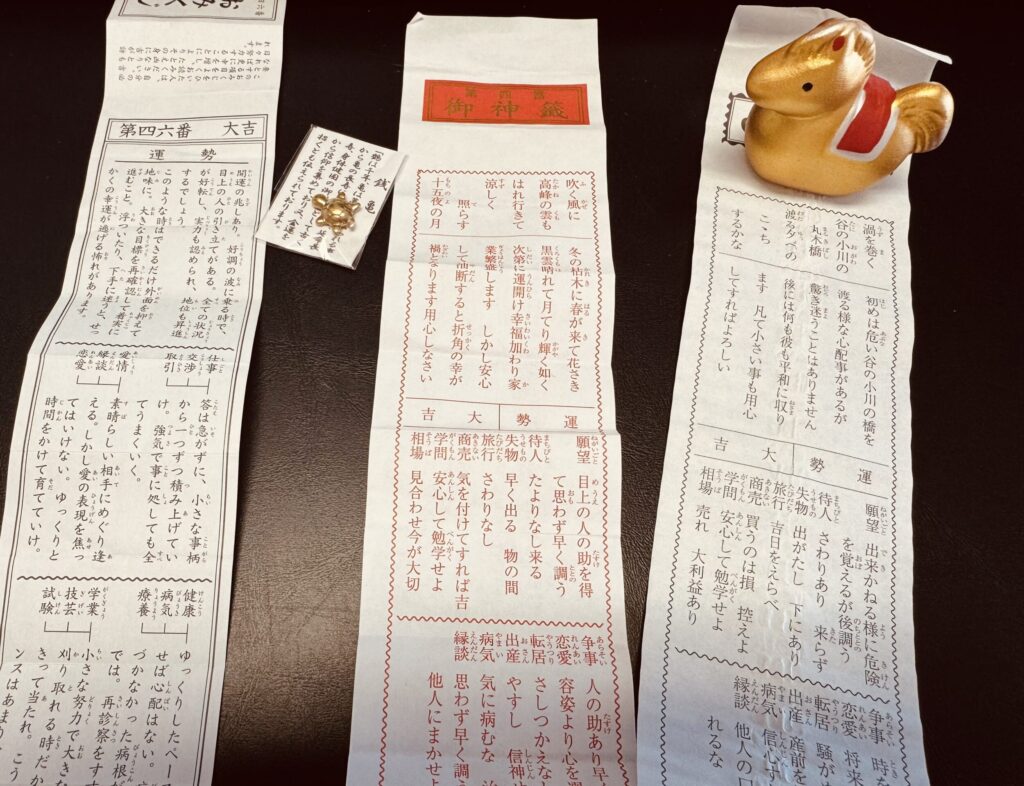 おみくじ
第四六番 大吉
運勢
開運の兆しあり、好調の波に乗る時で、
目上の人の引き立てがある。全ての状況
が好転し、実力も認められ、地位も昇進
するでしょう。
このような時はできるだけ外面を抑えて
地味に、大きな目標を再確認して着実に
進むこと。浮ついたり、下手に迷うと、せっ
かくの幸運が逃げる怖れがあります。
仕事
交渉
取引
答は急がずに、小さな事柄
から一つずつ積み上げてい
け。強気で事に処しても全
てうまくいく。
愛情
縁談
恋愛
素晴らしい相手にめぐり逢
える。しかし愛の表現を焦っ
てはいけない。ゆっくりと
時間をかけて育ててけ。
健康
病気
療養
ゆっくりしたペー
せば心配はない。
づかなかった病根が
では。再診察をす
学業
技芸
試験
小さな努力で大きな
刈り取れる時だか
きって当たれ。
ンスはあまり
銭亀
鶴は千年亀は
招くとも伝えられております。
御神籤
吹く風に
高峰の雲も
はれ行きて
涼しく
照らす
十五夜の月
冬の枯木に春が来て花さき
黒雲晴れて月てり輝く如く
次第に運開け幸福加わり家
業繁盛します しかし安心
して油断すると折角の幸が
禍となります用心しなさい
運勢 大吉
願望 目上の人の助を得
て思わず早く調う
待人 たよりなし来る
失物 早く出る 物の間
旅行 さわりなし
商売 気を付けてすれば吉
学問 安心して勉学せよ
相場 見合わせ今が大切
争事 人の助あり早
恋愛 容姿より心を
転居 さしつかえな
出産 やすし 信神
病気 気に病むな
縁談 思わず早く調
他人にまかせ
渦を巻く
谷の小川の
丸木橋
渡る夕べの
こゝち
するかな
初めは危い谷の小川の橋を
渡る様な心配事があるが
驚き迷うことはありません
後には何も彼も平和に取り
ます 凡て小さい事も用心
してすればよろしい
運勢 大吉
願望 出来かねる様に危険
を覚えるが後調う
待人 さわりあり 来らず
失物 出がたし 下にあり
旅行 吉日をえらべ
商売 買うのは損 控えよ
学問 安心して勉学せよ
相場 売れ 大利益あり
争事 時を
恋愛 将来
転居 騒が
出産 産前を
病気 信心す
縁談 他人の口
れるな